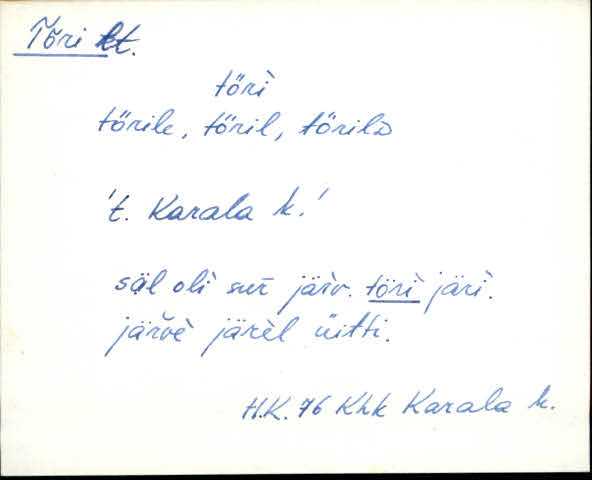 Tõri kt.
törì̬
törile, töril, törilᴅ
't. Karala k.'
säl olì̬ sūr järv. törì̬ järì̬.
järvè̬ järè̬l üitti.
H.K. 76 Khk Karala k.